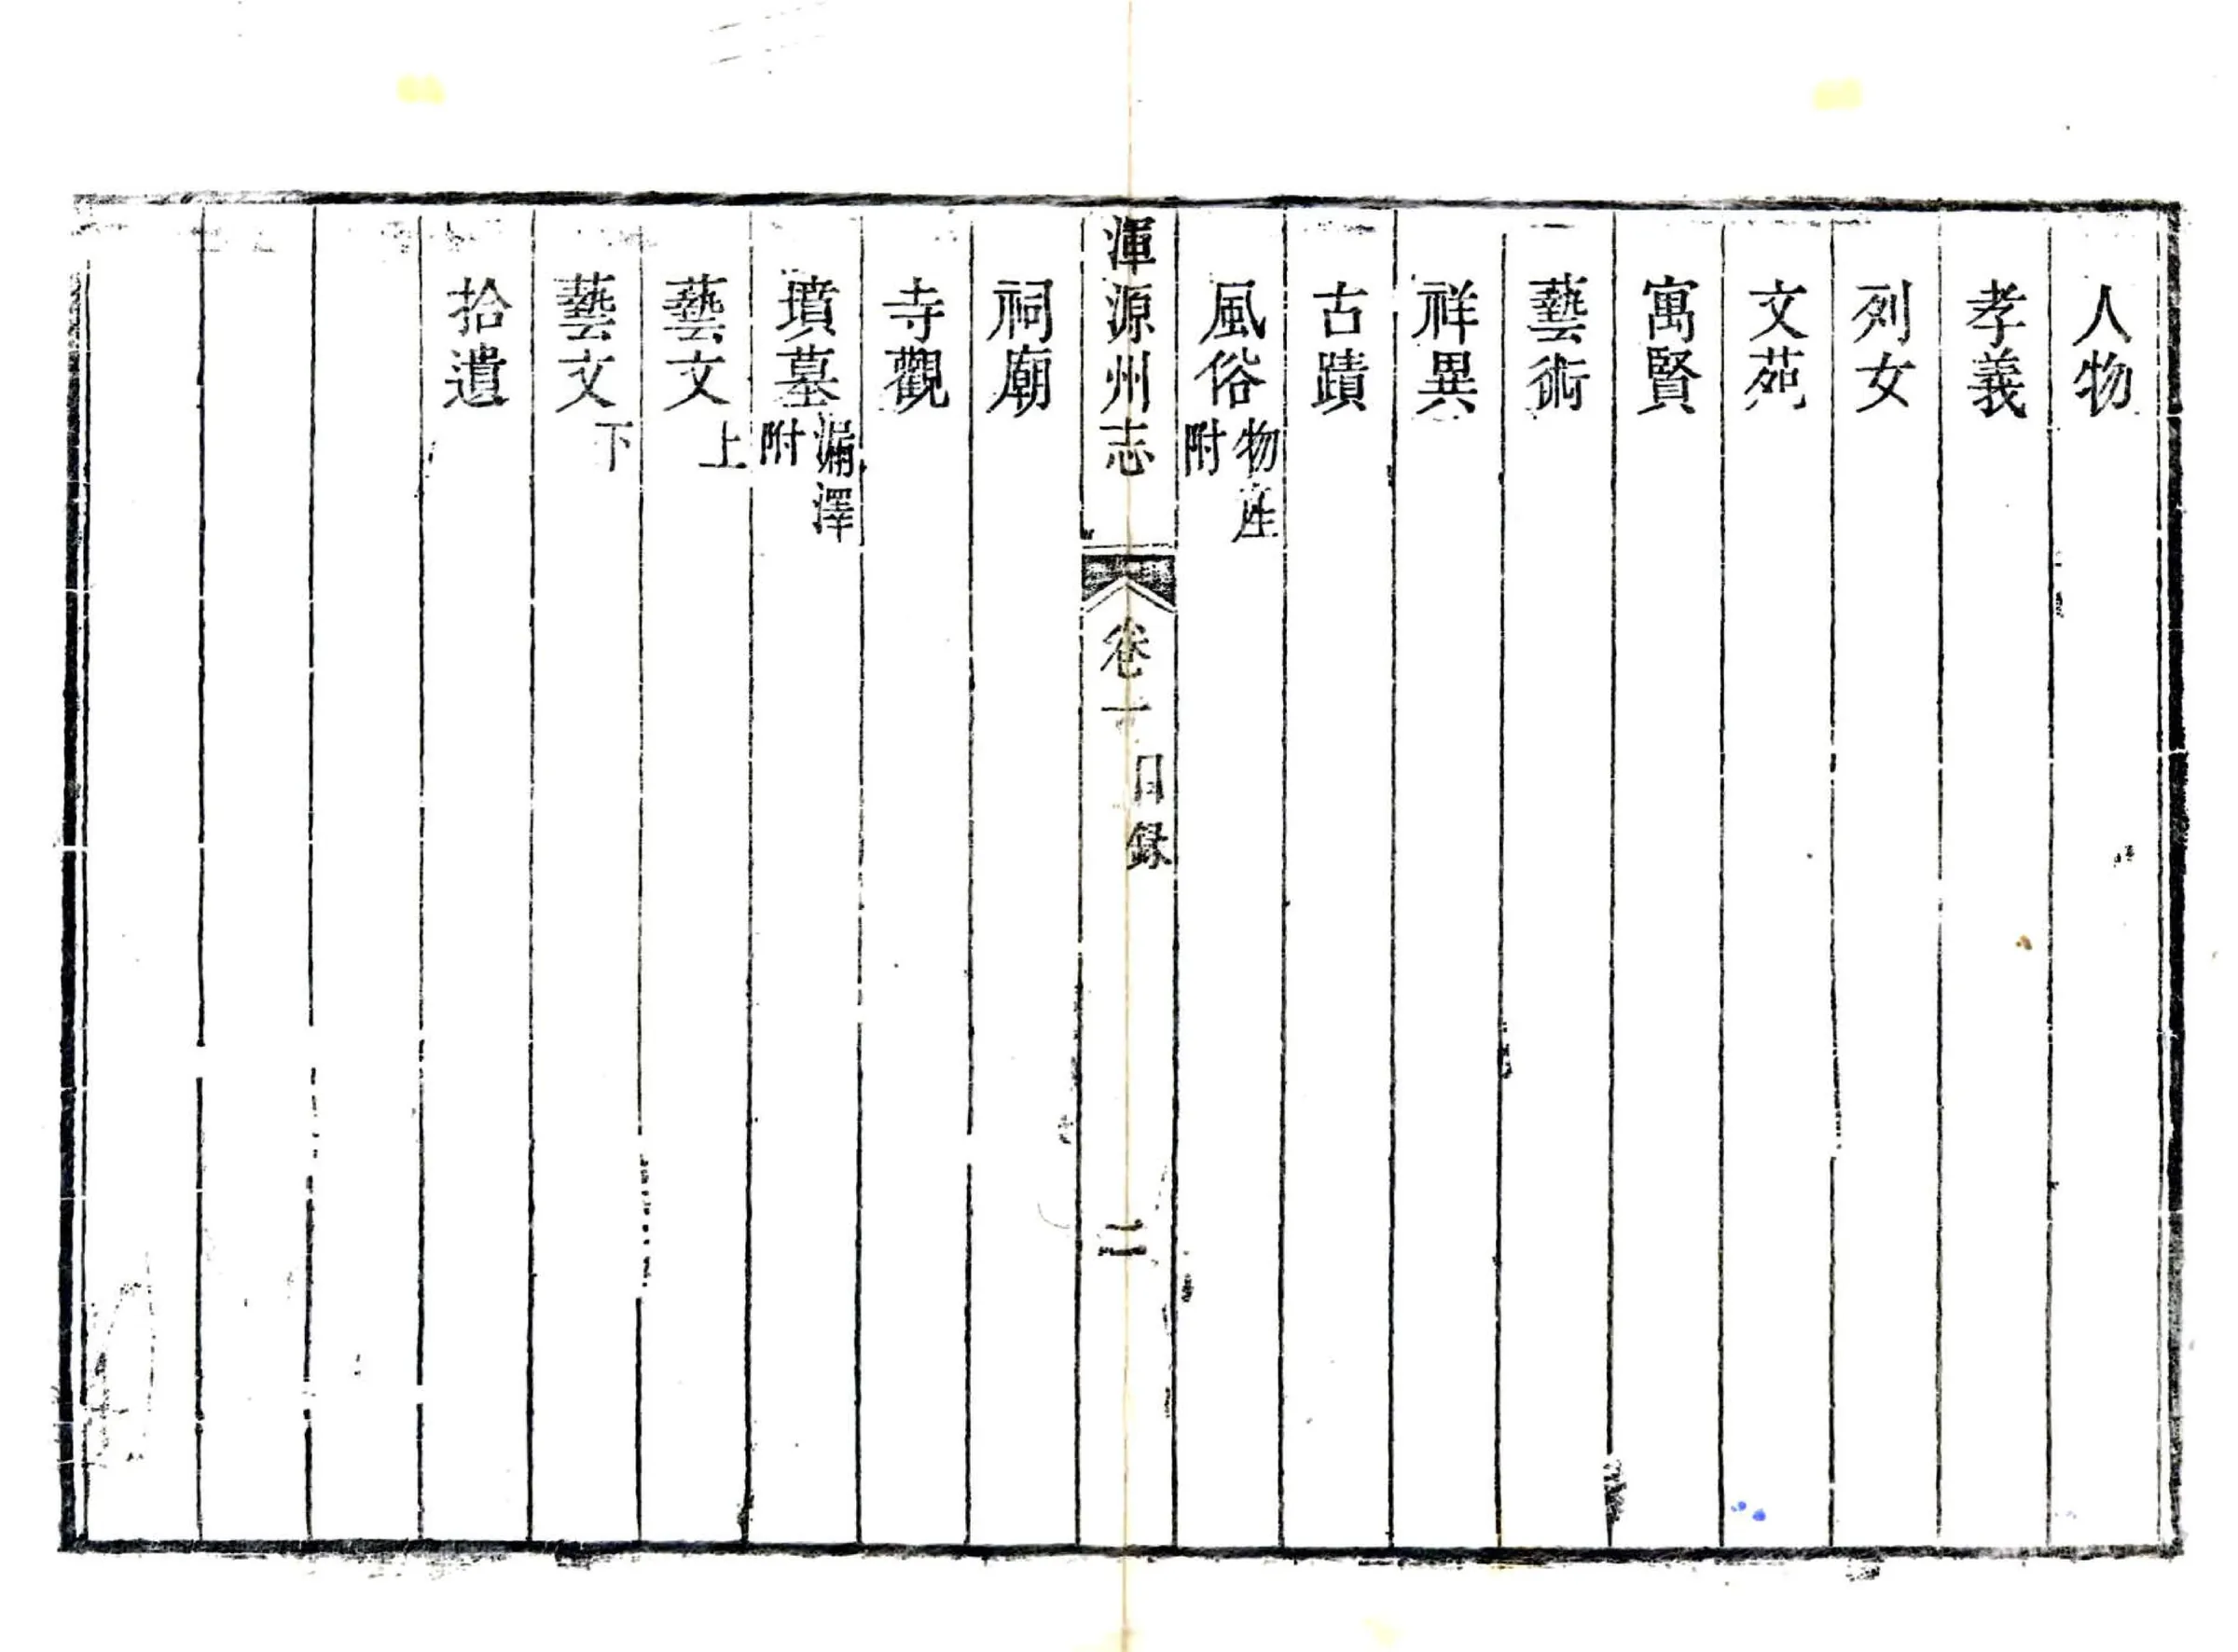 人物
孝義
列女
文苑
寓賢
藝術
祥異
古蹟
風俗物產附
渾源州志 卷一 目錄 二
祠廟
寺觀
墳墓漏澤附
藝文上
藝文下
拾遺